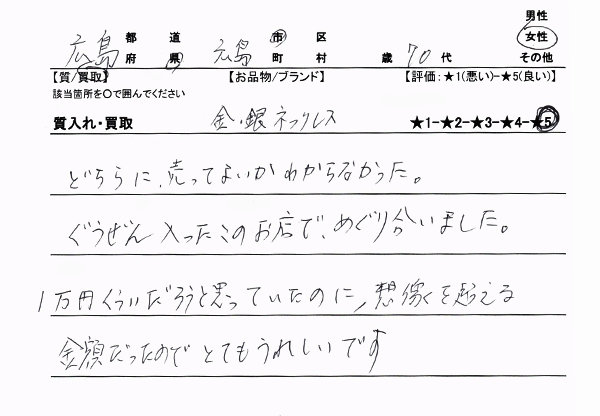 男性
広島 都 道 府 県 広島 市 区 町 村 歳 70 代 女性
その他
【質/買取】 【お品物/ブランド】 【評価:★1(悪い)-★5(良い)】
該当箇所を○で囲んでください
質入れ・買取 金・銀ネックレス ★1-★2-★3-★4-★5
どちらに、売ってよいかわからなかった。
ぐうぜん入ったこのお店で、めぐり合いました。
1万円くらいだろうと思っていたのに、想像を超える
金額だったのでとてもうれしいです